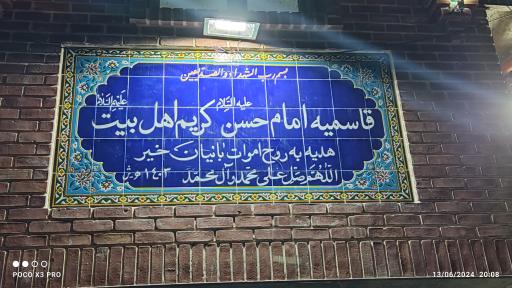 بسم رب الشهداء والصدیقین
قاسمیه امام حسن علیه السلام کریم اهل بیت علیهم السلام
هدیه به روح اموات بانیان خیر
اللهم صل علی محمد وآل محمد ۱۴۰۳ ه ش
POCO X3 PRO
13/06/2024 20:08